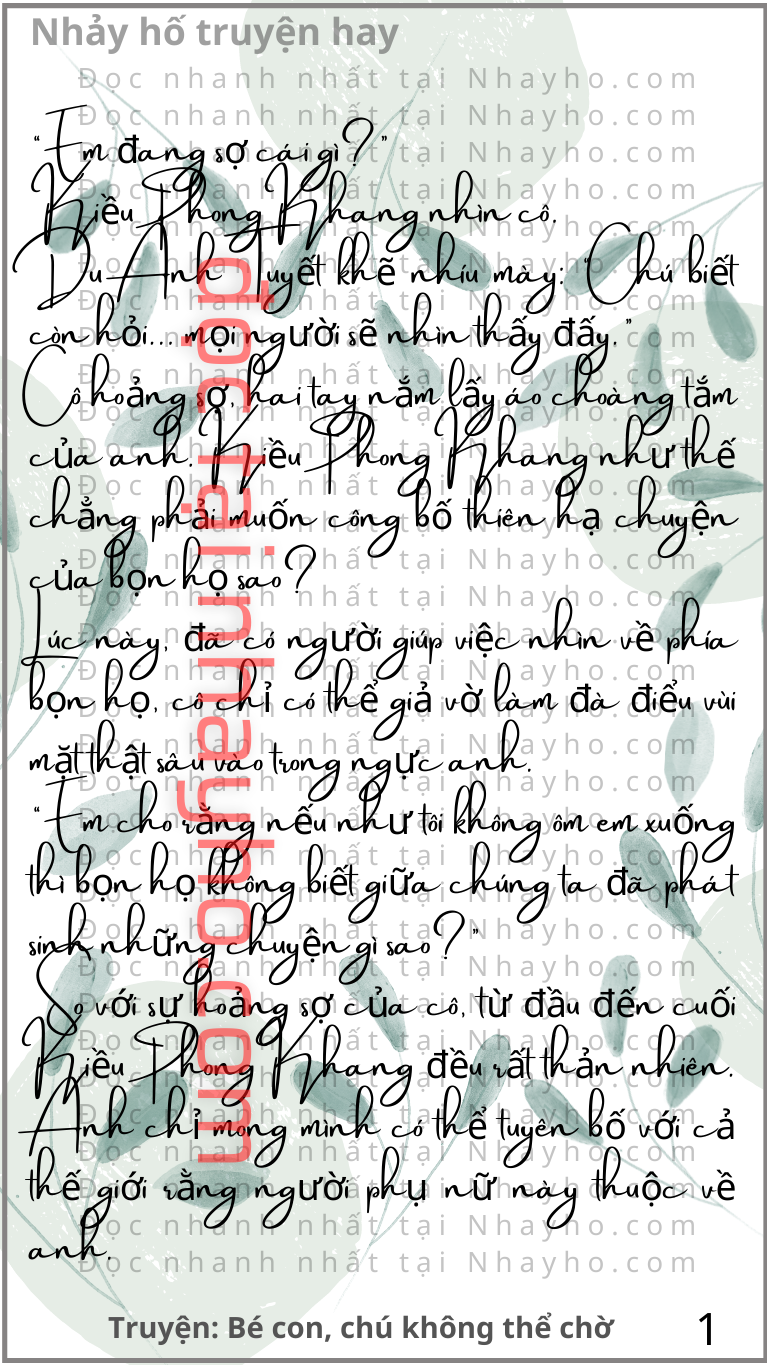 Nhảy hố truyện hay
Đọc nhanh nhất tại Nhayho.com
"Em đang sợ cái gì?"
Kiều Phong Khang nhìn cô.
Du Anh Tuyết khẽ nhíu mày: "Chú biết
còn hỏi... mọi người sẽ nhìn thấy đấy."
Cô hoảng sợ, hai tay nắm lấy áo choàng tắm
của anh. Kiều Phong Khang như thế
chẳng phải muốn công bố thiên hạ chuyện
của bọn họ sao?
Lúc này, đã có người giúp việc nhìn về phía
bọn họ, cô chỉ có thể giả vờ làm đà điểu vùi
mặt thật sâu vào trong ngực anh.
"Em cho rằng nếu như tôi không ôm em xuống
thì bọn họ không biết giữa chúng ta đã phát
sinh những chuyện gì sao?"
So với sự hoảng sợ của cô, từ đầu đến cuối
Kiều Phong Khang đều rất thản nhiên.
Anh chỉ mong mình có thể tuyên bố với cả
thế giới rằng người phụ nữ này thuộc về
anh.
đọc tại nhayho.com
Truyện: Bé con, chú không thể chờ
1